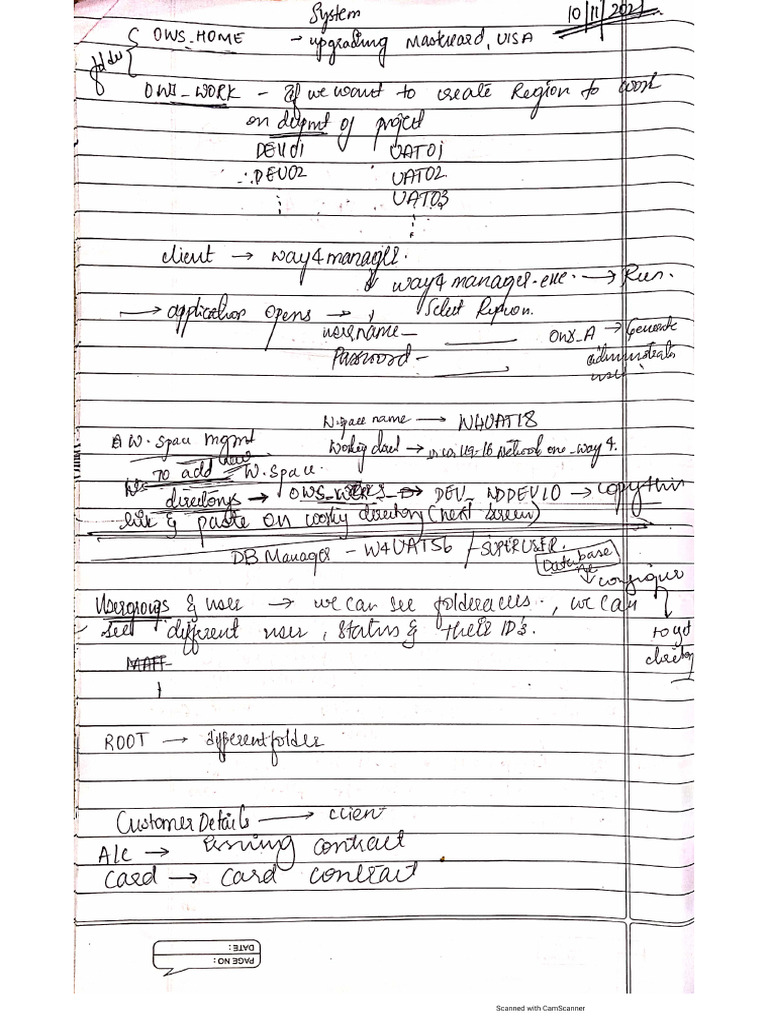 System
10/11/2021
OWS_HOME - upgrading Mastercard, VISA
folder
OWS_WORK - If we want to create Region to work
on dvlpmt of project
DEV01 UAT01
DEV02 UAT02
UAT03
client → way4manager.
way4manager.exe. → Run.
→ application opens → Select Region.
username - ____ OWS_A → Generate
Password - ____ administrato
user
W.space name → W4UAT18
W.space mgmt Working direct →
To add new W.space
directory → OWS_WORK → DEV_NDDEV10 → copy this
link & paste on workig directory (next screen)
DB Manager - W4UAT56 / - SUPERUSER.
Database
configure
Usergroups & user → we can see folderaccess., we can
see different user, status & their ID's.
to get
ROOT → differentfolder
Customer Details → client
A/c → issuing contract
card → card contract
PAGE NO:
DATE:
Scanned with CamScanner